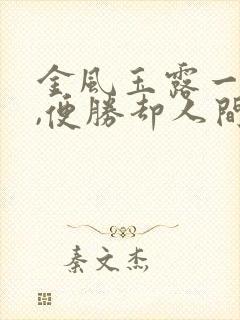 金風玉露一
,便勝却人間
秦文杰